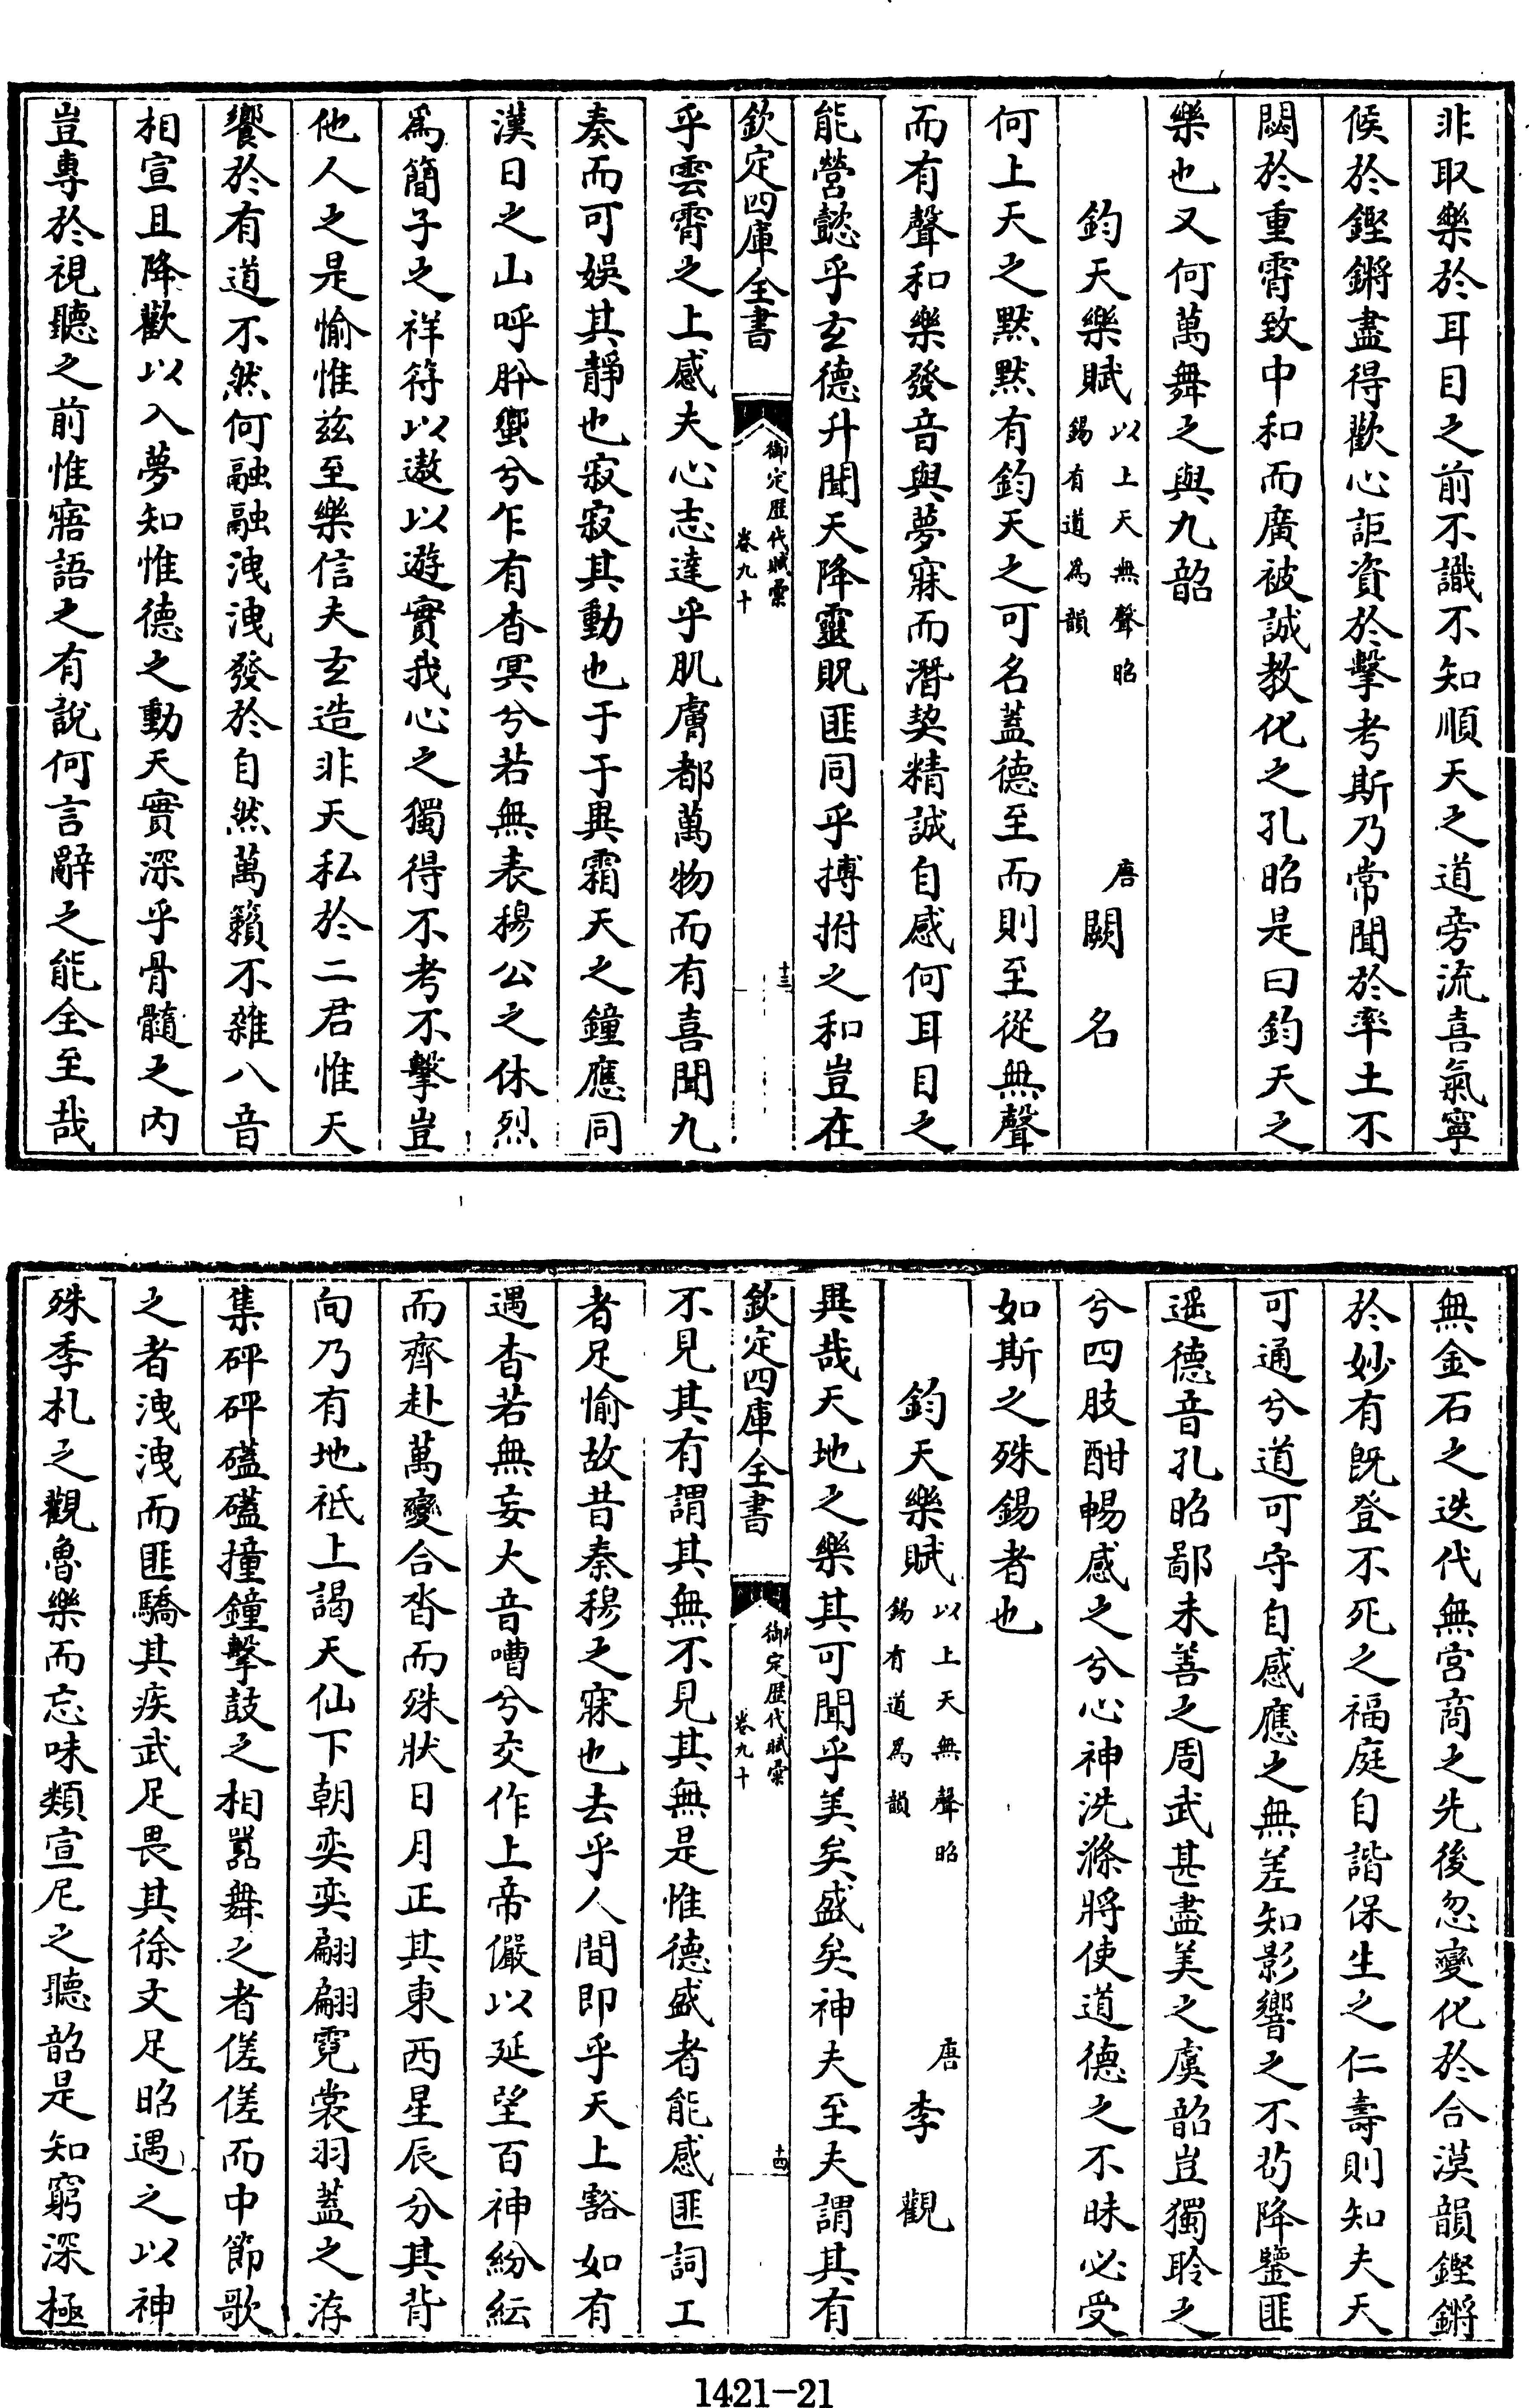 非取樂於耳目之前不識不知順天之道旁流喜氣寧
候於鏗鏘盡得歡心詎資於擊考斯乃常聞於率土不
閟於重霄致中和而廣被誠教化之孔昭是曰鈞天之
樂也又何萬舞之與九韶
鈞天樂賦以上天無聲昭錫有道為韻 唐闕名
何上天之默默有鈞天之可名蓋德至而則至從無聲
而有聲和樂發音與夢寐而潛契精誠自感何耳目之
能營懿乎玄德升聞天降靈貺匪同乎搏拊之和豈在
欽定四庫全書 御定歷代賦彙 卷九十 十三
乎雲霄之上感夫心志達乎肌膚都萬物而有喜聞九
奏而可娛其靜也寂寂其動也于于異霜天之鐘應同
漢日之山呼肸蠁兮乍有杳冥兮若無表穆公之休烈
為簡子之祥符以遨以遊實我心之獨得不考不擊豈
他人之是愉惟茲至樂信夫玄造非天私於二君惟天
饗於有道不然何融融洩洩發於自然萬籟不雜八音
相宣且降歡以入夢知惟德之動天實深乎骨髓之內
豈專於視聽之前惟寤語之有說何言辭之能全至哉
無金石之迭代無宮商之先後忽變化於合漠韻鏗鏘
於妙有既登不死之福庭自諧保生之仁壽則知夫天
可通兮道可守自感應之無差知影響之不茍降鑒匪
遥德音孔昭鄙未善之周武甚盡美之虞韶豈獨聆之
兮四肢酣暢感之兮心神洗滌將使道德之不昧必受
如斯之殊錫者也
鈞天樂賦以上天無聲昭錫有道為韻 唐李觀
異哉天地之樂其可聞乎美矣盛矣神夫至夫謂其有
欽定四庫全書 御定歷代賦彙 卷九十 十四
不見其有謂其無不見其無是惟德盛者能感匪詞工
者足愉故昔秦穆之寐也去乎人間即乎天上豁如有
遇杳若無妄大音嘈兮交作上帝儼以延望百神紛紜
而齊赴萬變合沓而殊狀日月正其東西星辰分其背
向乃有地祗上謁天仙下朝奕奕翩翩霓裳羽蓋之洊
集砰砰礚礚撞鐘擊鼓之相囂舞之者傞傞而中節歌
之者洩洩而匪驕其疾武足畏其徐文足昭遇之以神
殊季札之觀魯樂而忘味類宣尼之聽韶是知窮深極
1421-21